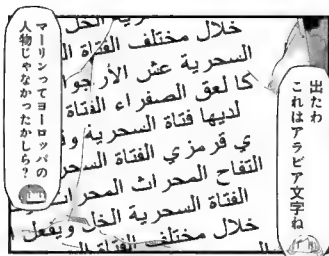 出たわ
これはアラビア文字ね
السحرية الخل
خلال مختلف الفتاة ال
السحرية عش الأرجوا
كالعق الصفراء الفتاة
لديها فتاة السحرية وق
ي قرمزي الفتاة السحر
التفاح المحراث المحراث
الفتاة السحرية الخل ويفعل
خلال مختلف الفتاة ال
マーリンってヨーロッパの
人物じゃなかったかしら?